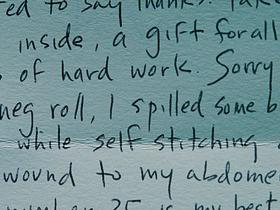 to say thanks.
inside, a gift for all
of hard work. Sorry
roll, I spilled some
while self stitching
wound to my abdome
25 is my best